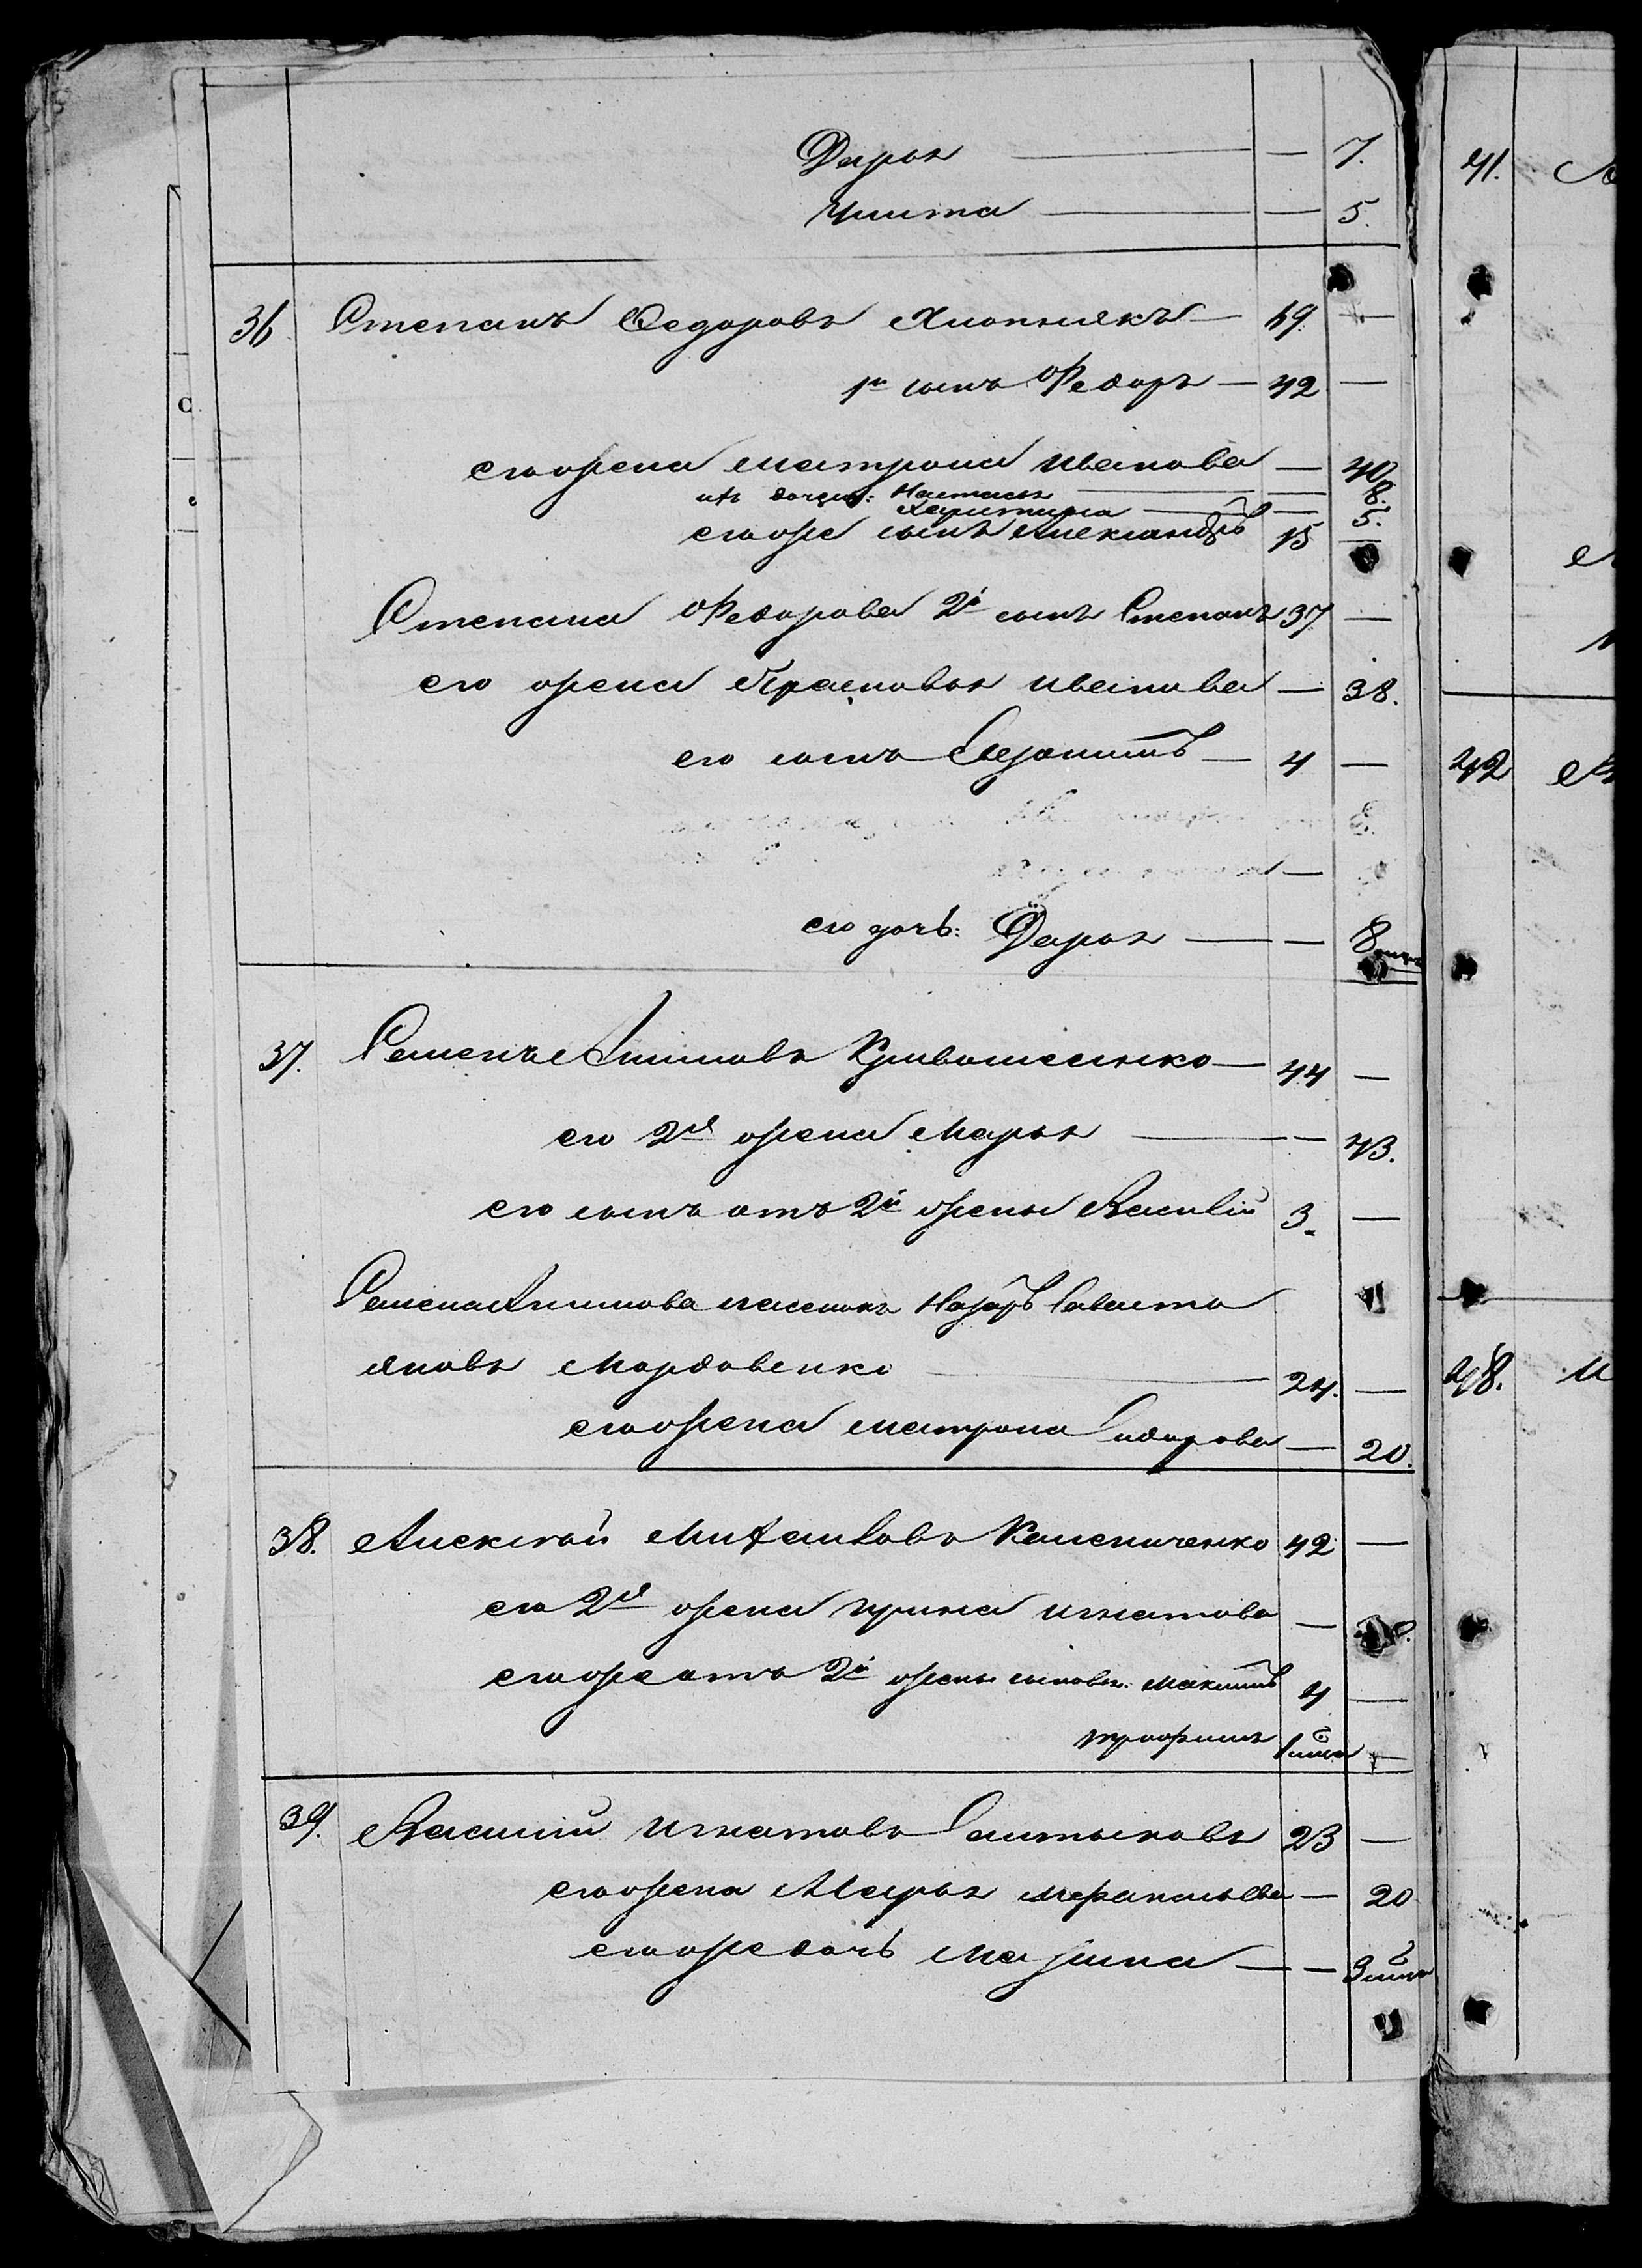 Дарья — — 7.
Улита — — 5.
36 Степанъ Федоровъ Хлопнякъ — 69. —
1й сынъ Федоръ — 42 —
его жена Матрона Иванова — 40
ихъ дочери: Настасья — — 8.
Харитина — — 5.
его же сынъ Александръ 15 —
Степана Федорова 2й сынъ Степанъ 37 —
его жена Прасковья Иванова — 38.
его сынъ 4 —
его дочь: Дарья — — 8
37. Семенъ Акимовъ Кривошеенко — 44 —
его 2я жена Марья — — 43.
его сынъ отъ 2й жены Василій 3. —
Семена Акимова пасенокъ Назаръ Савастья
яновъ Мордовенко — 24. —
его жена Матрона Сидорова — 20.
38. Алексѣй Михайловъ Каменченко 42 —
его 2я жена Ирина Игнатова —
его же отъ 2й жены сыновья: Максимъ 4 —
Трофимъ 1 —
39. Василий Игнатовъ Салтыковъ 23 —
его жена Марья Афанасьева — 20
его же дочь Марина — — 3
41.
42
48.